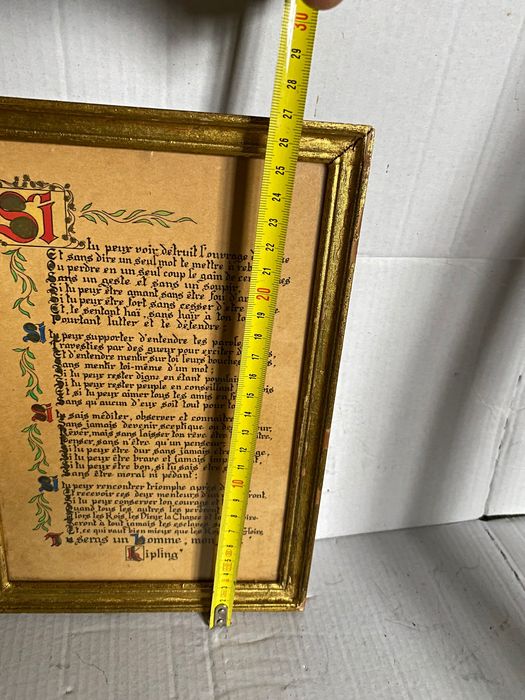 Si
tu peux voir détruit l'ouvrage de
Et sans dire un seul mot te mettre à reb
Ou perdre en un seul coup le gain de cen
Sans un geste et sans un soupir,
Si tu peux être amant sans être fou d'am
Si tu peux être fort sans cesser d'être
Et, te sentant haï, sans haïr à ton to
Pourtant lutter et te défendre;
Si tu peux supporter d'entendre tes parole
Travesties par des gueux pour exciter d
Et d'entendre mentir sur toi leurs bouches
Sans mentir toi-même d'un mot;
Si tu peux rester digne en étant populai
Si tu peux rester peuple en conseillant
Et si tu peux aimer tous tes amis en
Sans qu'aucun d'eux soit tout pour to
Si tu sais méditer, observer et connaître
Sans jamais devenir sceptique ou
Rêver, mais sans laisser ton rêve être
Penser, sans n'être qu'un penseur;
Si tu peux être dur sans jamais être
Si tu peux être brave et jamais
Si tu peux être bon, si tu sais être
Sans être moral ni pédant;
Si tu peux rencontrer triomphe après
Et recevoir ces deux menteurs d'un
Si tu peux conserver ton courage et
Quand tous les autres les perdront
Alors les Rois, les Dieux, la Chance et
Seront à tout jamais tes esclaves
Et, ce qui vaut bien mieux que les Rois Gloire
Tu seras un homme, mon
Kipling
30
29
28
27
26
25
24
23
22
21
20
19
18
17
16
15
14
13
12
11
10
9
8
7
6
5
4
3
2